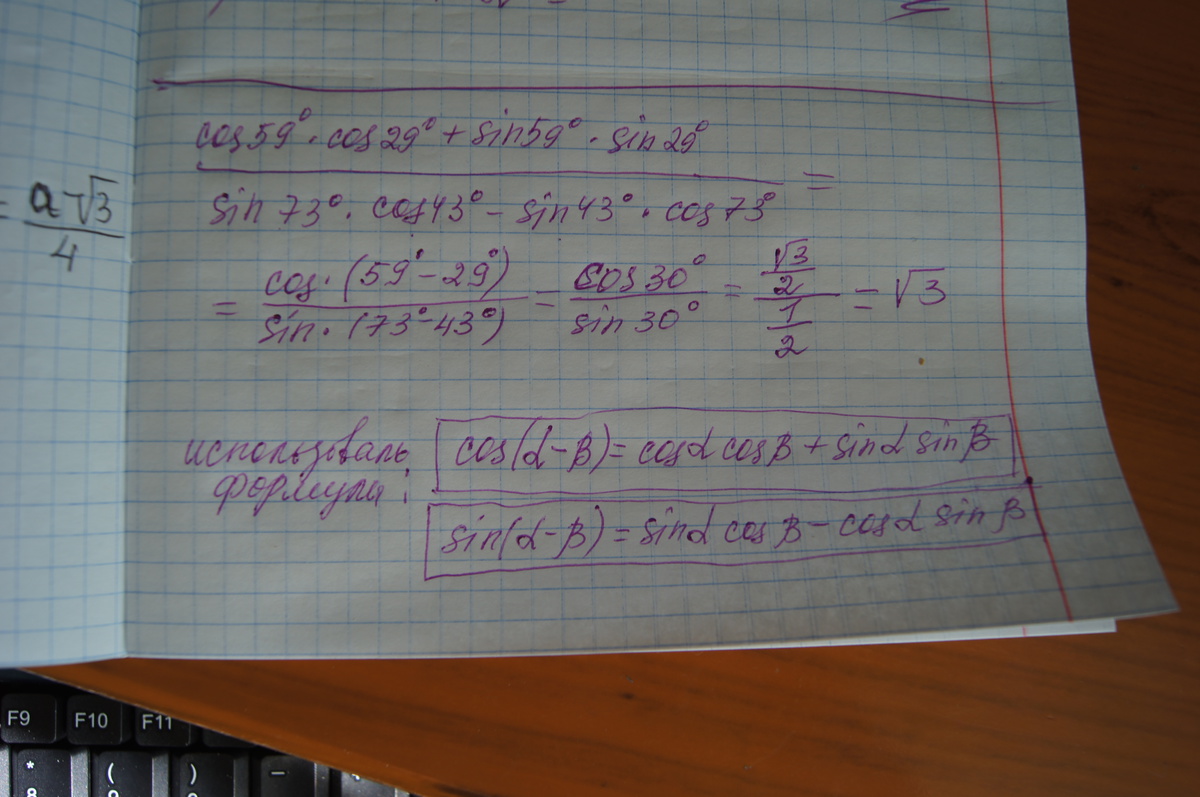 = a√3/4
cos59°·cos29°+sin59°·sin29°
sin73°·cos43°-sin43°·cos73° =
= cos·(59°-29°)/sin·(73°-43°) = cos30°/sin30° = (√3/2)/(1/2) = √3
использоваль cos(α-β)=cosα cosβ+sinα sinβ
формулы:
sin(α-β)=sinα cosβ-cosα sinβ
F9 F10 F11
* ( ) -
8 9